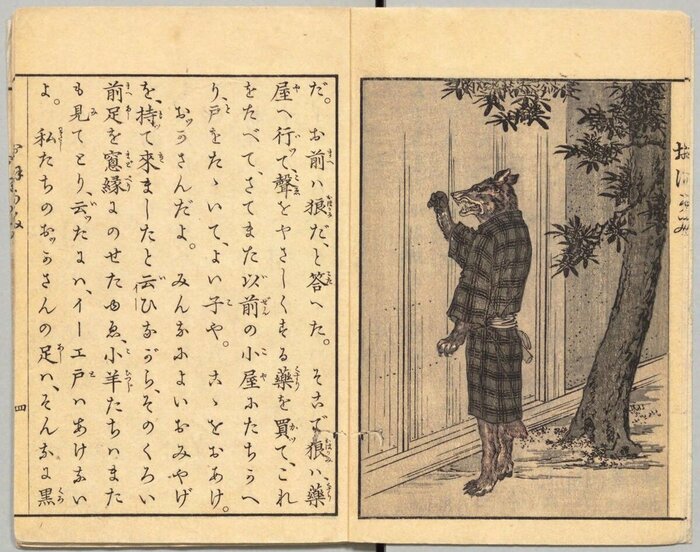 だ。お前ハ狼だ、と答へた。そこで狼ハ、藥
屋へ行ッて、聲をやさしくする藥を買ッて、これ
をたべて、さてまた以前の小屋にたちかへ
り、戸をたゝいて、よい子や。こゝをおあけ。
おッかさんだよ。みんなによいおみやげ
を、持て來ましたと云ひながら、そのくろい
前足を窻縁にのせたゆゑ、小羊たちハまた
も見てとり、云ッたにハ、イーエ戸ハあけない
よ。私たちのおッかさんの足ハ、そんなに黒
四